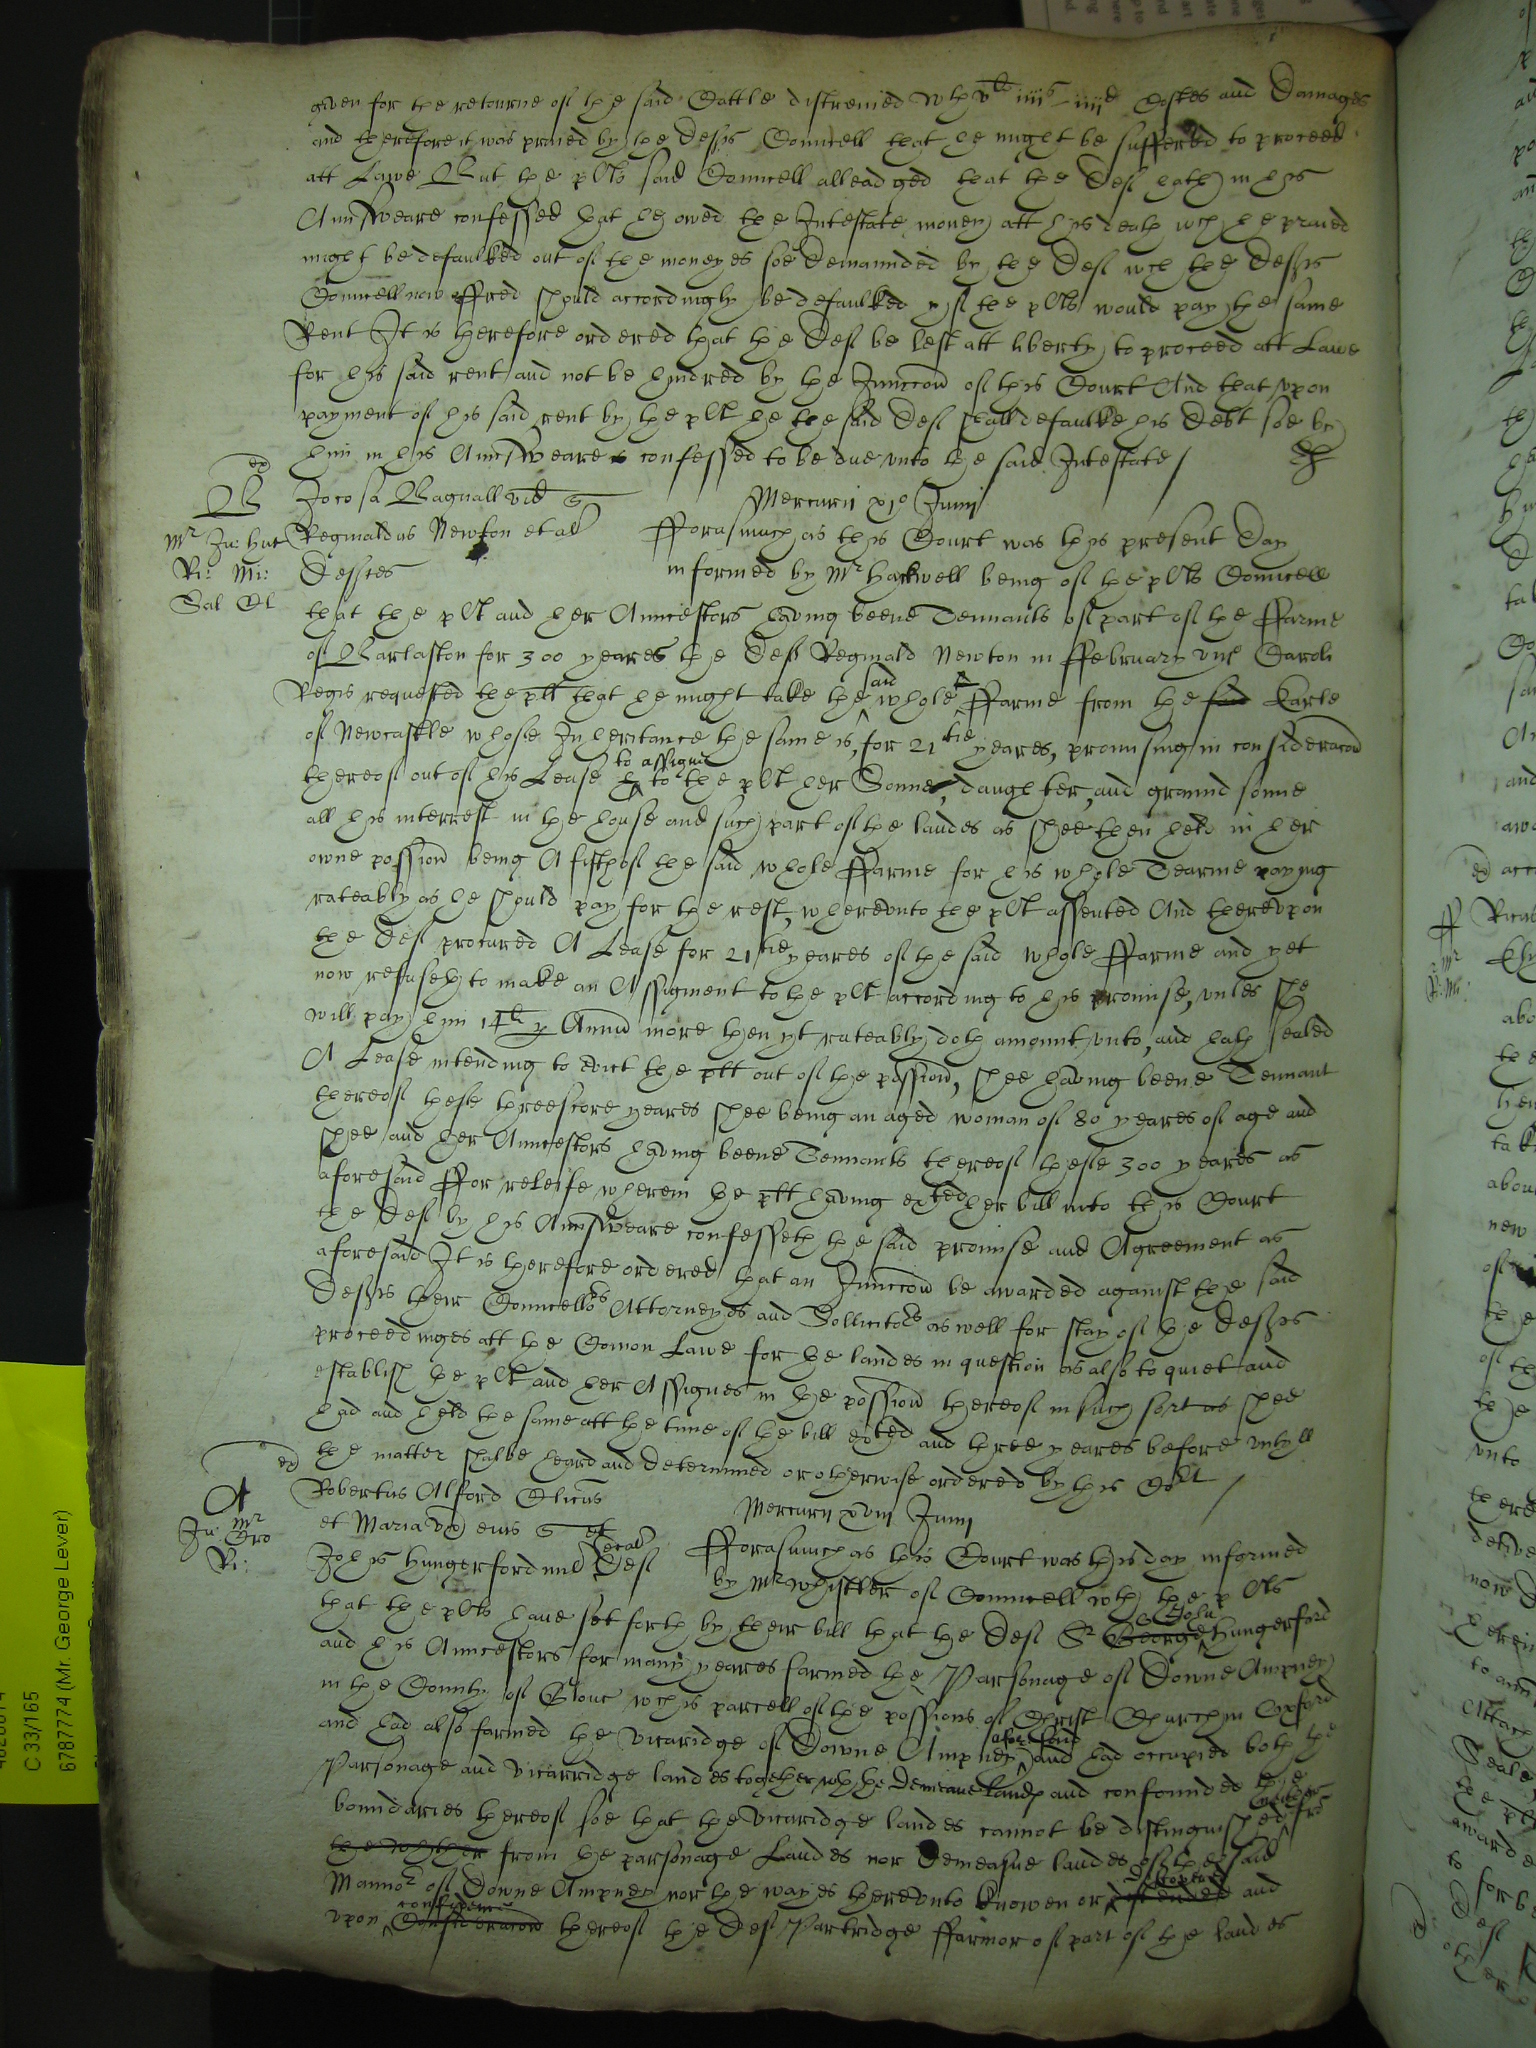 given for the retourne of the said Cattle distreined wth vli iiiis iiiid Costes and Damages
and therefore it was praied by the Defts Councell that he might be suffered to proceed
att Lawe But the plts said Councell alleadged that the Def hath in his
Aunsweare confessed that he owed the Intestate money att his death wch he praied
might be defaulked out of the moneyes soe demaunded by the Def wch the Defts
Councell now offred should accordingly be defaulked yf the plts would pay the same
Rent It is therefore ordered that the Def be left att liberty to proceed att Lawe
for his said rent and not be hindred by the Iniuccon of this Court And that vpon
payment of his said rent by the plt he the said Def shall defaulke his Debt soe by
him in his Aunsweare confessed to be due vnto the said Intestate /
ex
B
Jocosa Bagnall vid
Mercurii xi° Junii
Mr Ju: Hut
Reginaldus Newton et al
Fforasmuch as this Court was this present day
Ri: Mi:
Deftes
informed by Mr Hackwell being of the plts Councell
Sal Cl
that the plt and her Auncestors having beene Tennants of part of the Ffarme
of Barlaston for 300 yeares the Deft Reginald Newton in Ffebruary Caroli
Regis requested the plt that he might take the said whole Ffarme from the said Earle
of Newcastle whose Inheritance the same is, for 21tie yeares, promising in consideracon
thereof out of his Lease to assigne to the plt her Sonne, daughter, and graund sonne
all his interrest in the house and such part of the landes as shee then held in her
owne possion being A fifth of the said whole Ffarme for his whole Tearme paying
rateably as he should pay for the rest, wherevnto the plt assented And therevpon
the Def procured A Lease for 21tie yeares of the said whole Ffarme and yet
now refuseth to make an Assigment to the plt according to his promise, vnles she
will pay him 14li p Annu more then yt rateably doth amount vnto, and hath sealed
A Lease intending to evict the plt out of the possion, shee having beene Tennant
thereof these threescore yeares shee being an aged woman of 80 yeares of age and
shee and her Auncestors having beene Tennants thereof these 300 yeares as
aforesaid Ffor releife wherein the plt having exhted her bill into this Court
the Def by his Aunsweare confesseth the said promise and Agreement as
aforesaid It is therefore ordered that an Iniuccon be awarded against the said
Defts their Councellors Attorneyes and Sollicitors as well for stay of the Defts
proceedinges att the Comon Lawe for the landes in question as also to quiet and
establish the plt and her Assignes in the possion thereof in such sort as shee
had and held the same att the time of the bill exhted and three yeares before vntill
the matter shalbe heard and determined or otherwise ordered by this Cort /
ex
A
Robertus Alford Clicus
Mercurii xviii Junii
Mr
Ju: Cro
et Maria vx eius
Ri:
Johis Hungerford mil et al Def
Fforasmuch as this Court was this day informed
by Mr Whistler of Councell wth the plts
that the plts have set forth by their bill that the Def Sr George John Hungerford
and his Auncestors for many yeares farmed the Parsonage of Downe Ampney
in the County of Glouc wch is parcell of the possions of Christ Church in Oxford
and had also farmed the vicaridge of Downe Ampney aforesaid and had occupied both the
Parsonage and vicarridge landes together wth the Demeane landes and confounded the
boundaries thereof soe that the vicaridge landes cannot be distinguished neither
the whther from the parsonage Landes nor Demeasne landes of the said
Mannor of Downe Ampney nor the wayes therevnto knowen or and
vpon confidence Consideracon thereof the Def Partridge Ffarmor of part of the landes
C 33/165
6787774 (Mr. George Lever)